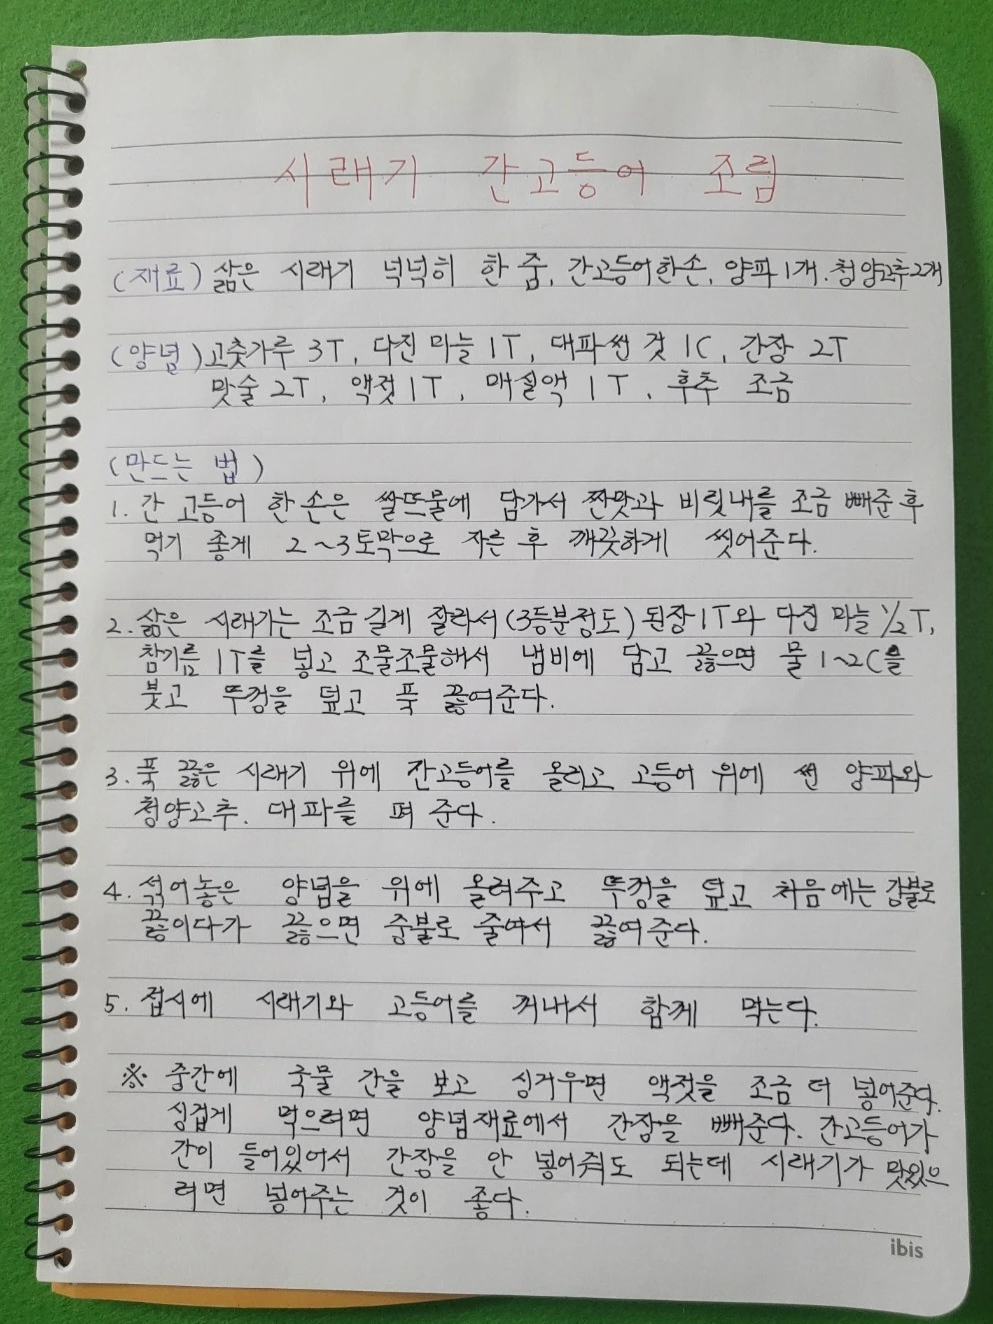 시래기 간고등어 조림
(재료) 삶은 시래기 넉넉히 한 줌, 간고등어한손, 양파1개. 청양고추2개
(양념) 고춧가루 3T, 다진 마늘 1T, 대파썬 것 1C, 간장 2T
맛술 2T, 액젓 1T, 매실액 1T, 후추 조금
(만드는 법)
1. 간 고등어 한손은 쌀뜨물에 담가서 짠맛과 비릿내를 조금 빼준 후
먹기 좋게 2~3토막으로 자른 후 깨끗하게 씻어준다.
2. 삶은 시래기는 조금 길게 잘라서 (3등분정도) 된장1T와 다진 마늘 1/2T,
참기름 1T를 넣고 조물조물해서 냄비에 담고 끓으면 물 1~2C를
붓고 뚜껑을 덮고 푹 끓여준다.
3. 푹 끓은 시래기 위에 간고등어를 올리고 고등어 위에 썬 양파와
청양고추. 대파를 펴 준다.
4. 섞어놓은 양념을 위에 올려주고 뚜껑을 덮고 처음에는 강불로
끓이다가 끓으면 중불로 줄여서 끓여준다.
5. 접시에 시래기와 고등어를 꺼내서 함께 먹는다.
※ 중간에 국물 간을 보고 싱거우면 액젓을 조금 더 넣어준다.
싱겁게 먹으려면 양념재료에서 간장을 빼준다. 간고등어가
간이 들어있어서 간장을 안 넣어줘도 되는데 시래기가 맛있으
려면 넣어주는 것이 좋다.
ibis